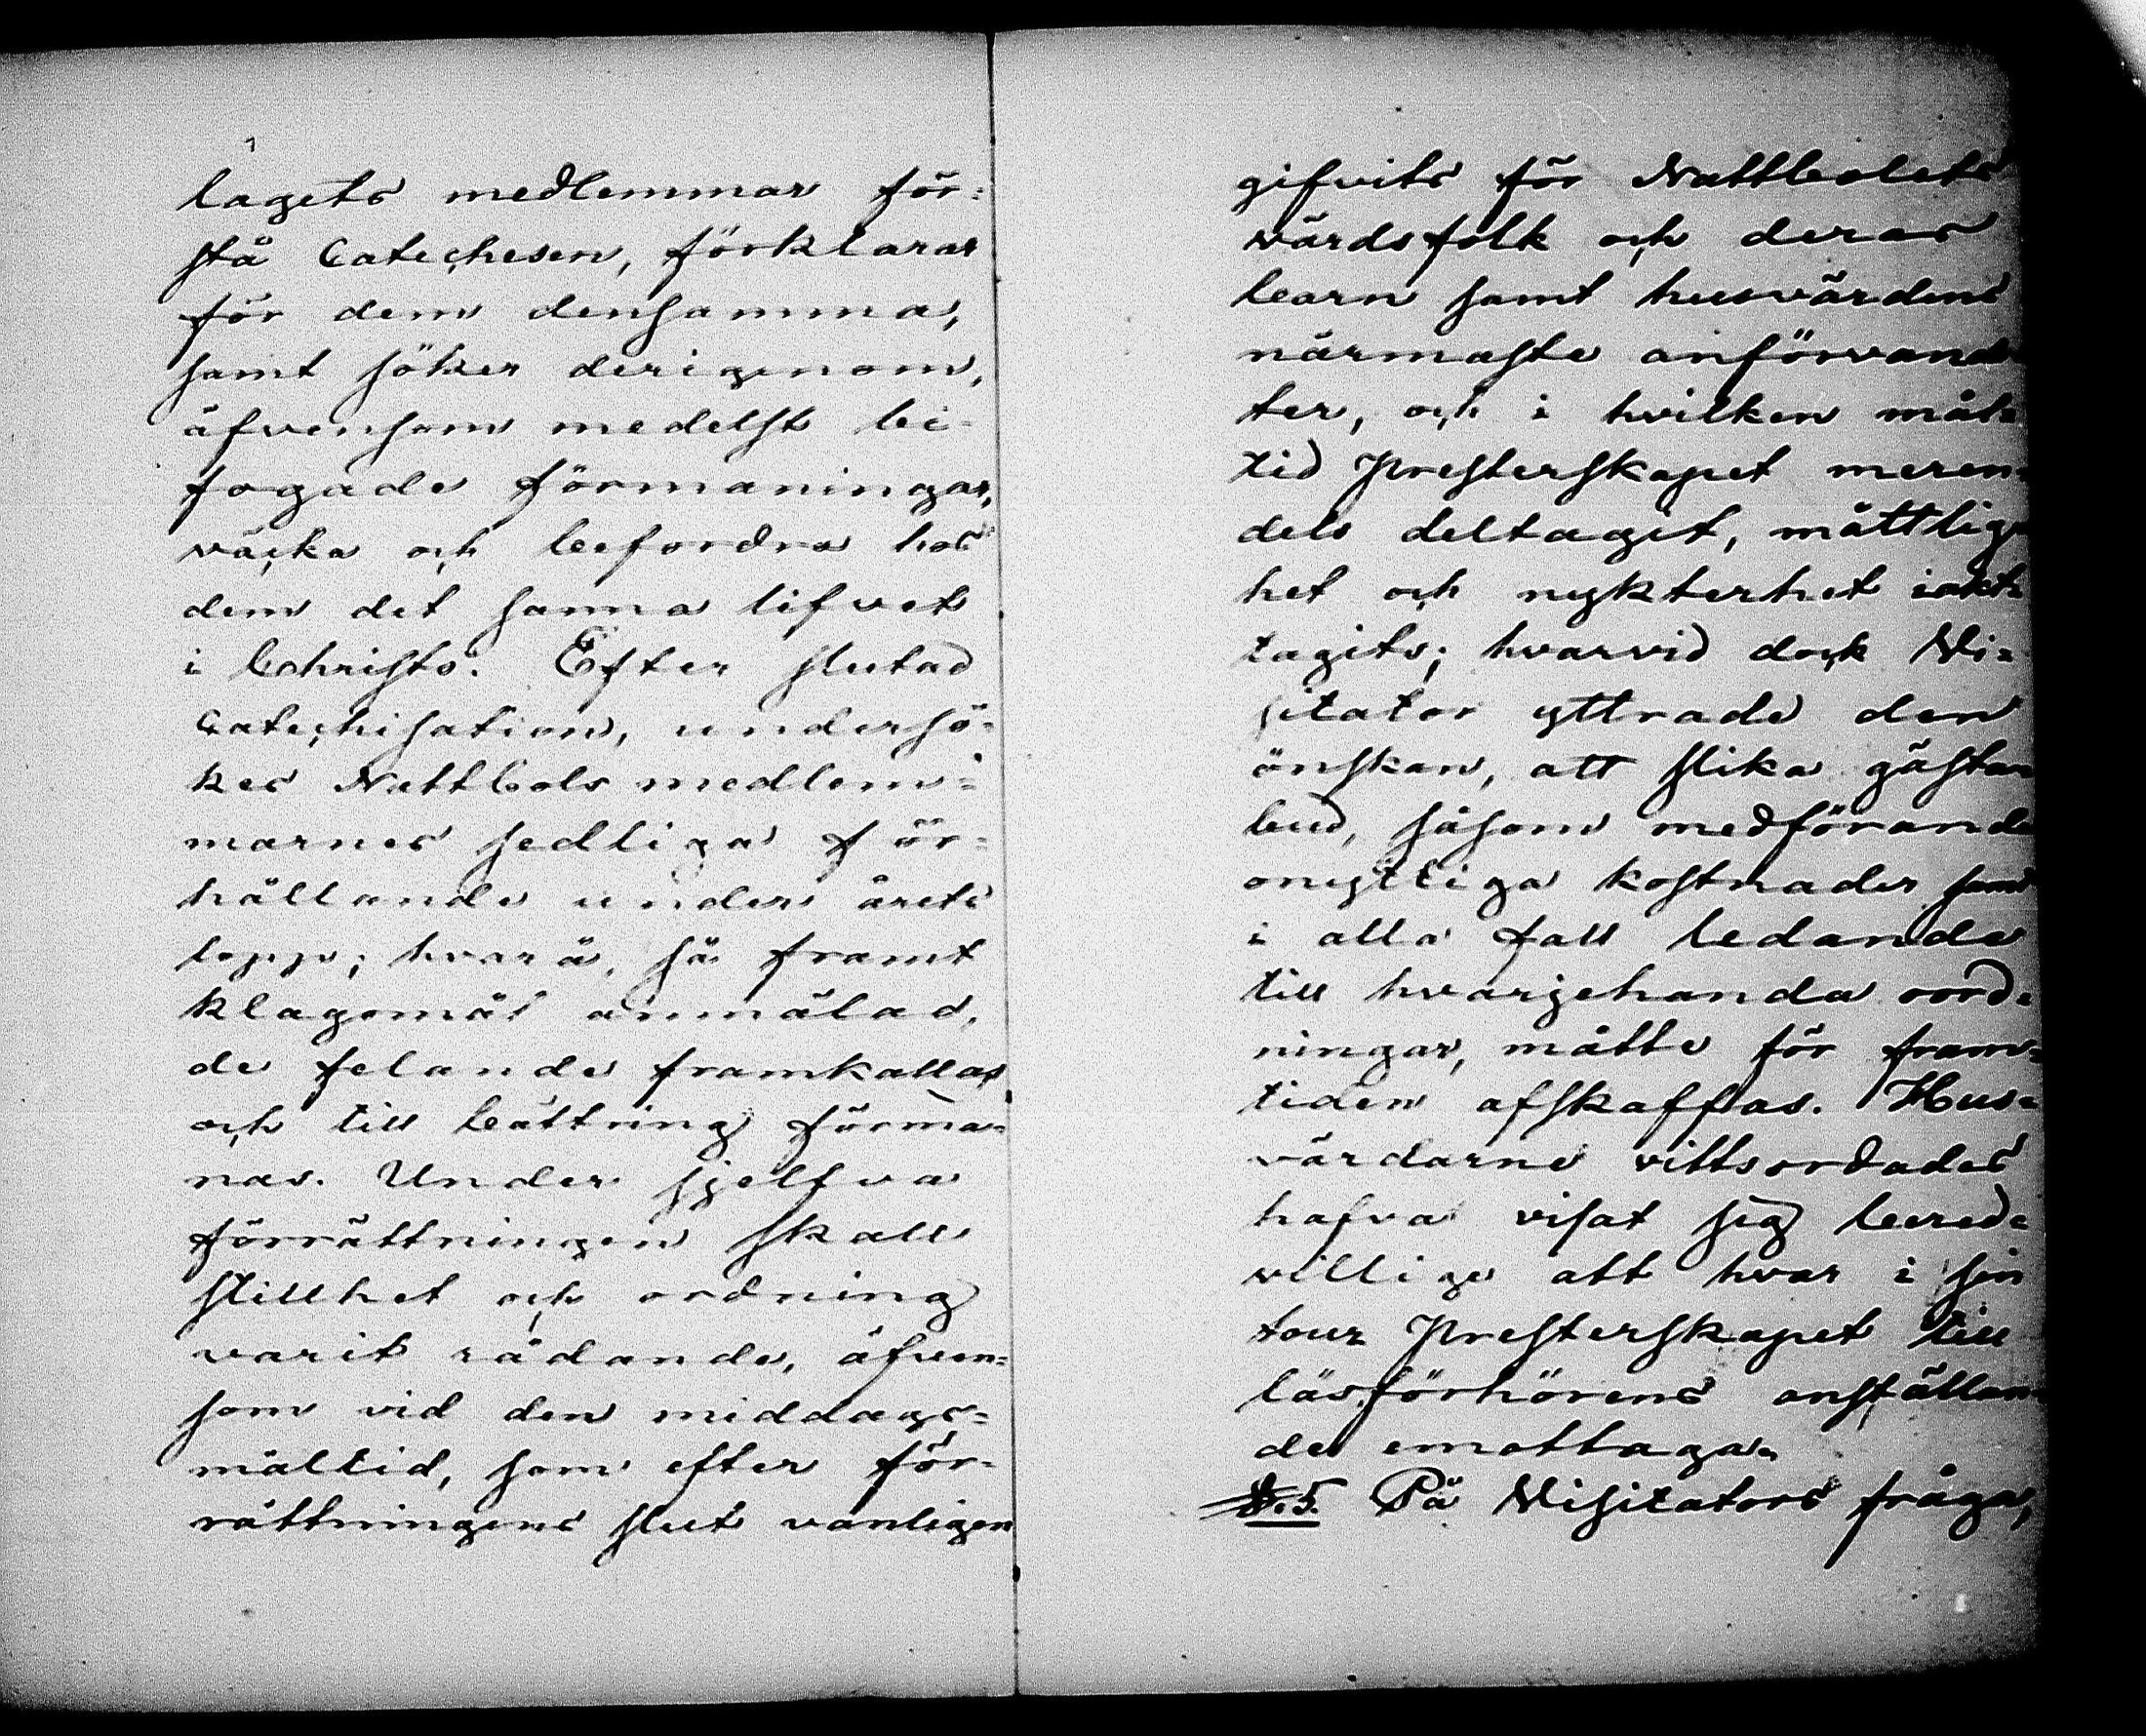 lagets medlemmar för=
stå Catechesen, förklarar
för dem densamma,
samt söker derigenom,
äfvensom medelst bi-
fogade förmaningar,
väcka och befordra hos
dem det sanna lifvet
i Christo. Efter slutad
Catechisation, undersö=
kes Nattbols medlem=
marnes sedliga för=
hållande under årets
lopp; hvarå, så framt
klagomål anmälas,
de felande framkallas
och till bättring förma=
nas. Under sjelfva
förrättningen skall
stillhet och ordning
varit rådande, äfven=
som vid den middags=
måltid, som efter för=
rättningens slut vanligen
gifvits för Nattbolets
värdsfolk och deras
barn samt husvärdens
närmaste anförvand=
ter, och i hvilken mål=
tid Presterskapet meren=
dels deltagit, måttlig=
het och nykterhet iakt=
tagits; hvarvid dock Vi=
sitator yttrade den
önskan, att slika gästa=
bud, såsom medförande
onyttiga kostnader samt
i alla fall ledande
till hvarjehanda oord=
ningar, måtte för fram=
tiden afskaffas. Hus=
värdarne vittsordades
hafva visat sig bered=
villige att hvar i sin
tour Presterskapet till
läsförhörens anställan=
de emottaga.
§.5. På Visitators fråga,